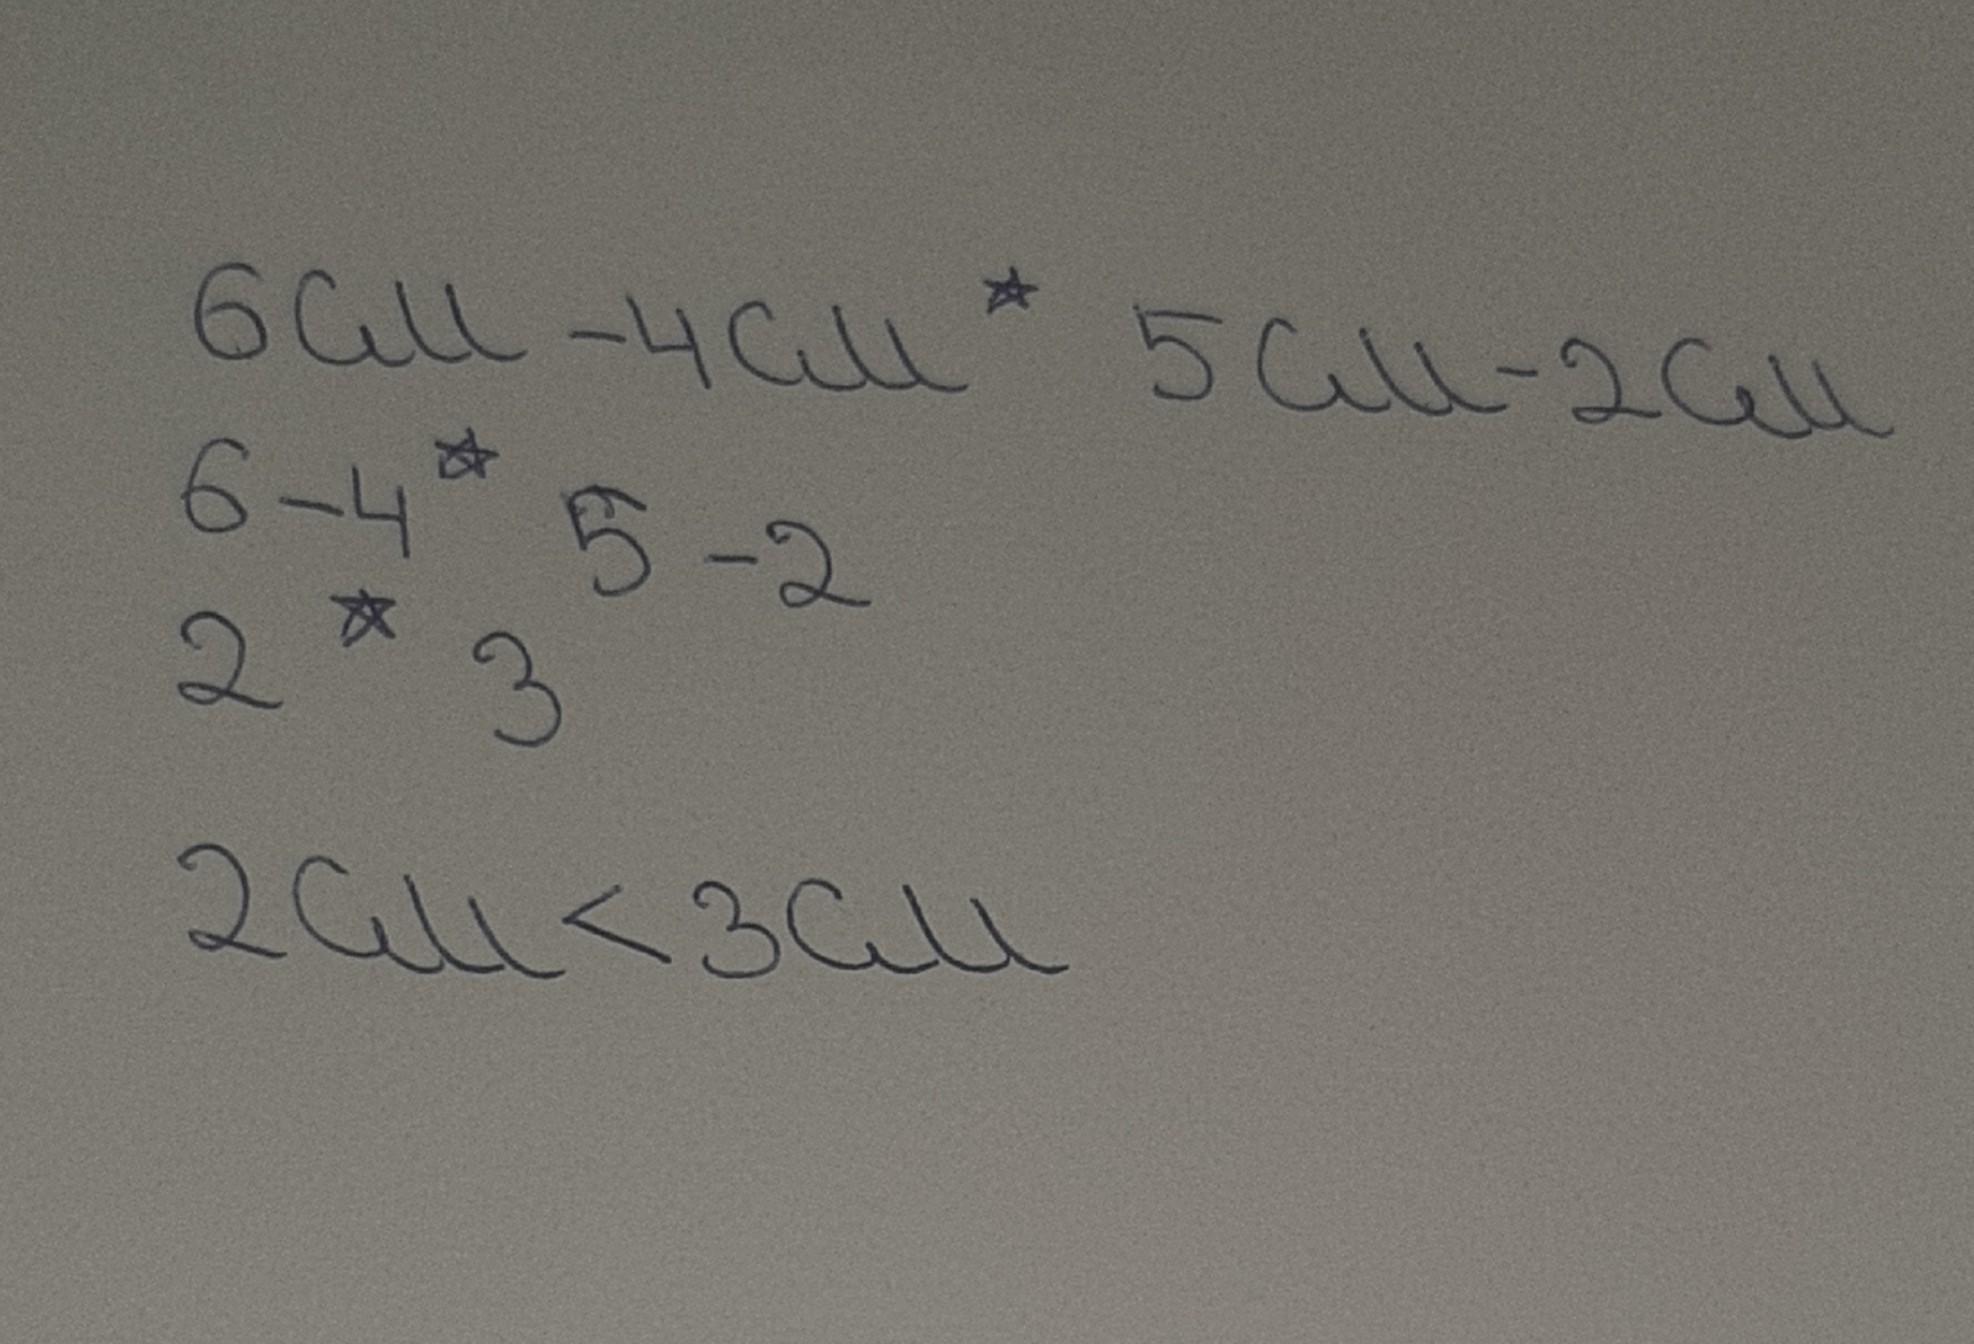 6см - 4см * 5см - 2см
6 - 4 * 5 - 2
2 * 3
2см < 3см